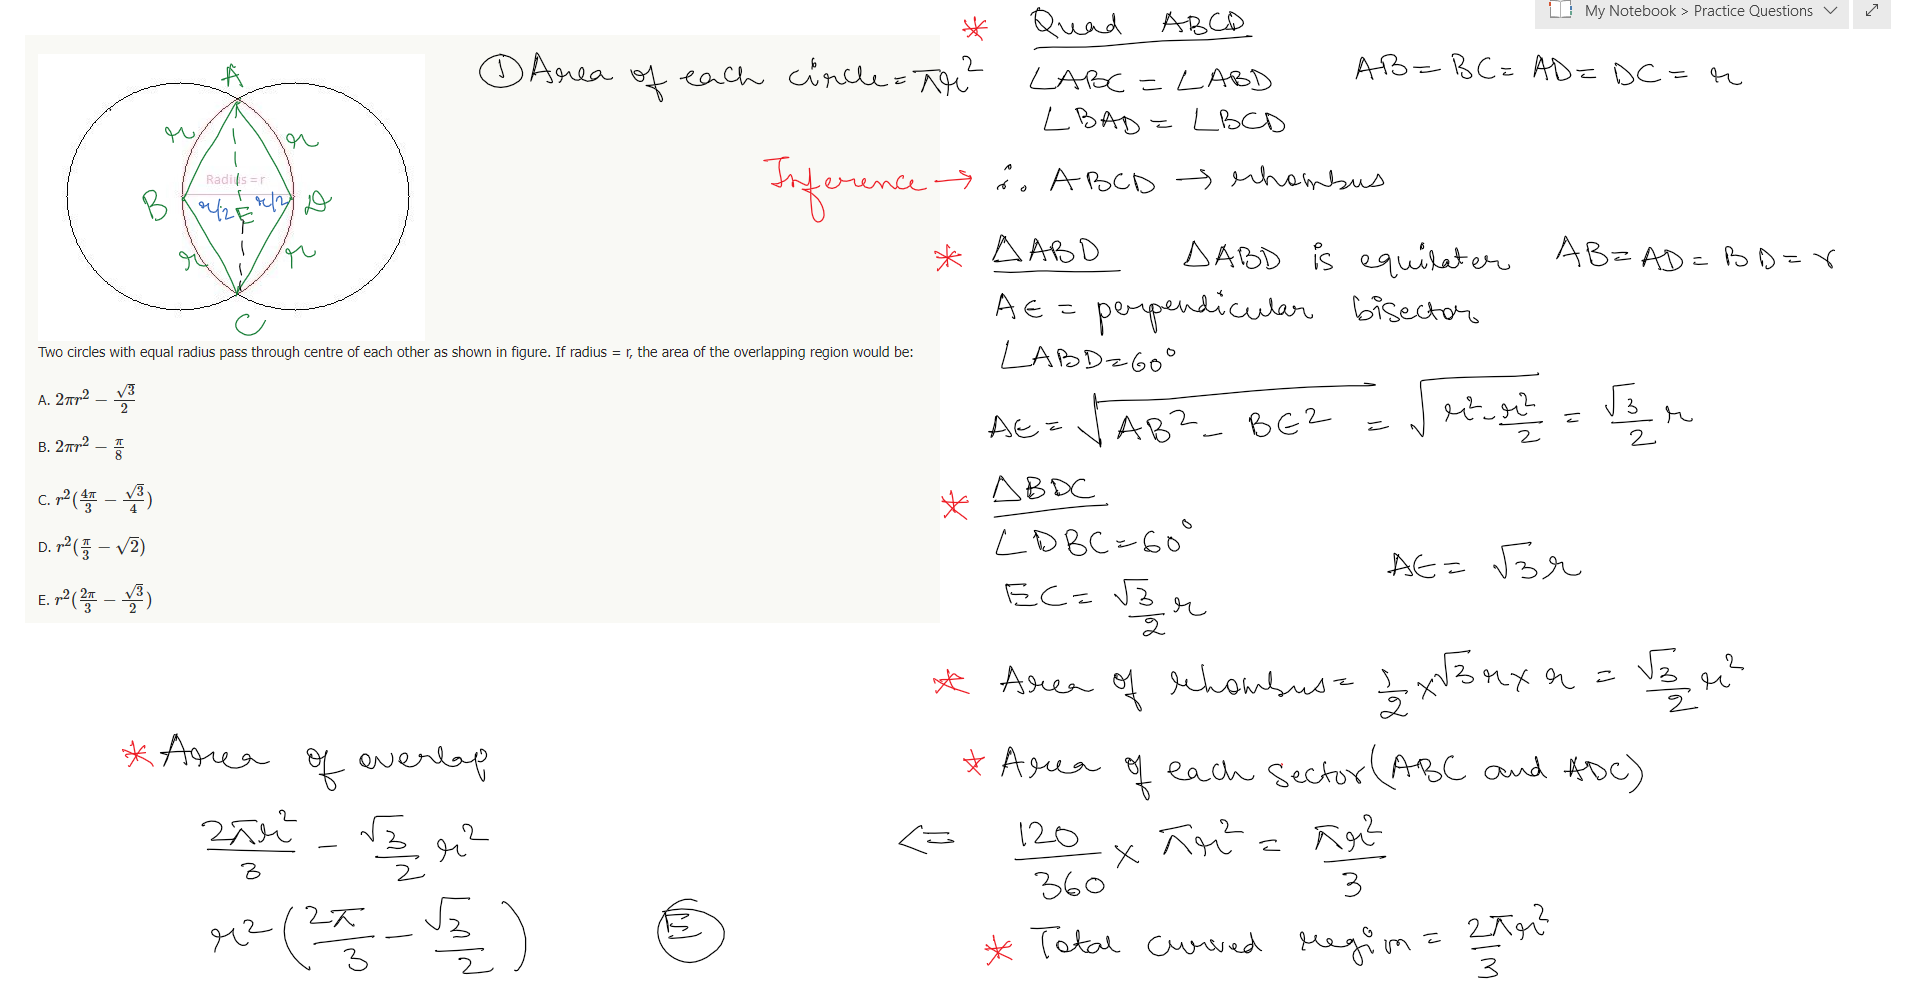 My Notebook > Practice Questions
A
r
r
Radius = r
B
r/2
E
r/2
D
r
r
C
Two circles with equal radius pass through centre of each other as shown in figure. If radius = r, the area of the overlapping region would be:
A. 2πr² − √3/2
B. 2πr² − π/8
C. r²(4π/3 − √3/4)
D. r²(π/3 − √2)
E. r²(2π/3 − √3/2)
① Area of each circle = πr²
* Quad ABCD
∠ABC = ∠ABD
AB = BC = AD = DC = r
∠BAD = ∠BCD
Inference → ∴ ABCD → rhombus
* △ABD
△ABD is equilater AB = AD = BD = r
AE = perpendicular bisector
∠ABD = 60°
AE = √(AB² − BE²) = √(r² − r²/2) = √3/2 r
* △BDC
∠DBC = 60°
AE = √3 r
EC = √3/2 r
* Area of rhombus = 1/2 × √3 r × r = √3/2 r²
* Area of each sector (ABC and ADC)
<= 120/360 × πr² = πr²/3
* Total curved region = 2πr²/3
* Area of overlap
2πr²/3 − √3/2 r²
r² (2π/3 − √3/2)
E